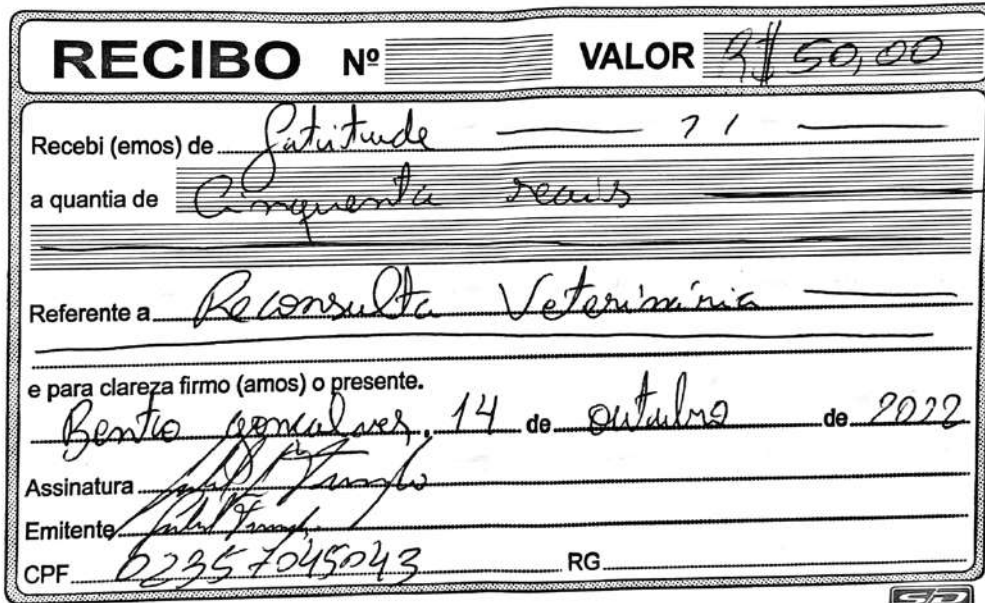 RECIBO Nº VALOR R$ 50,00
Recebi (emos) de Gatitude
a quantia de Cinquenta reais
Referente a Reconsulta Veterinária
e para clareza firmo (amos) o presente.
Bento gonçalves, 14 de outubro de 2022
Assinatura
Emitente
CPF 02357045043 RG
SD